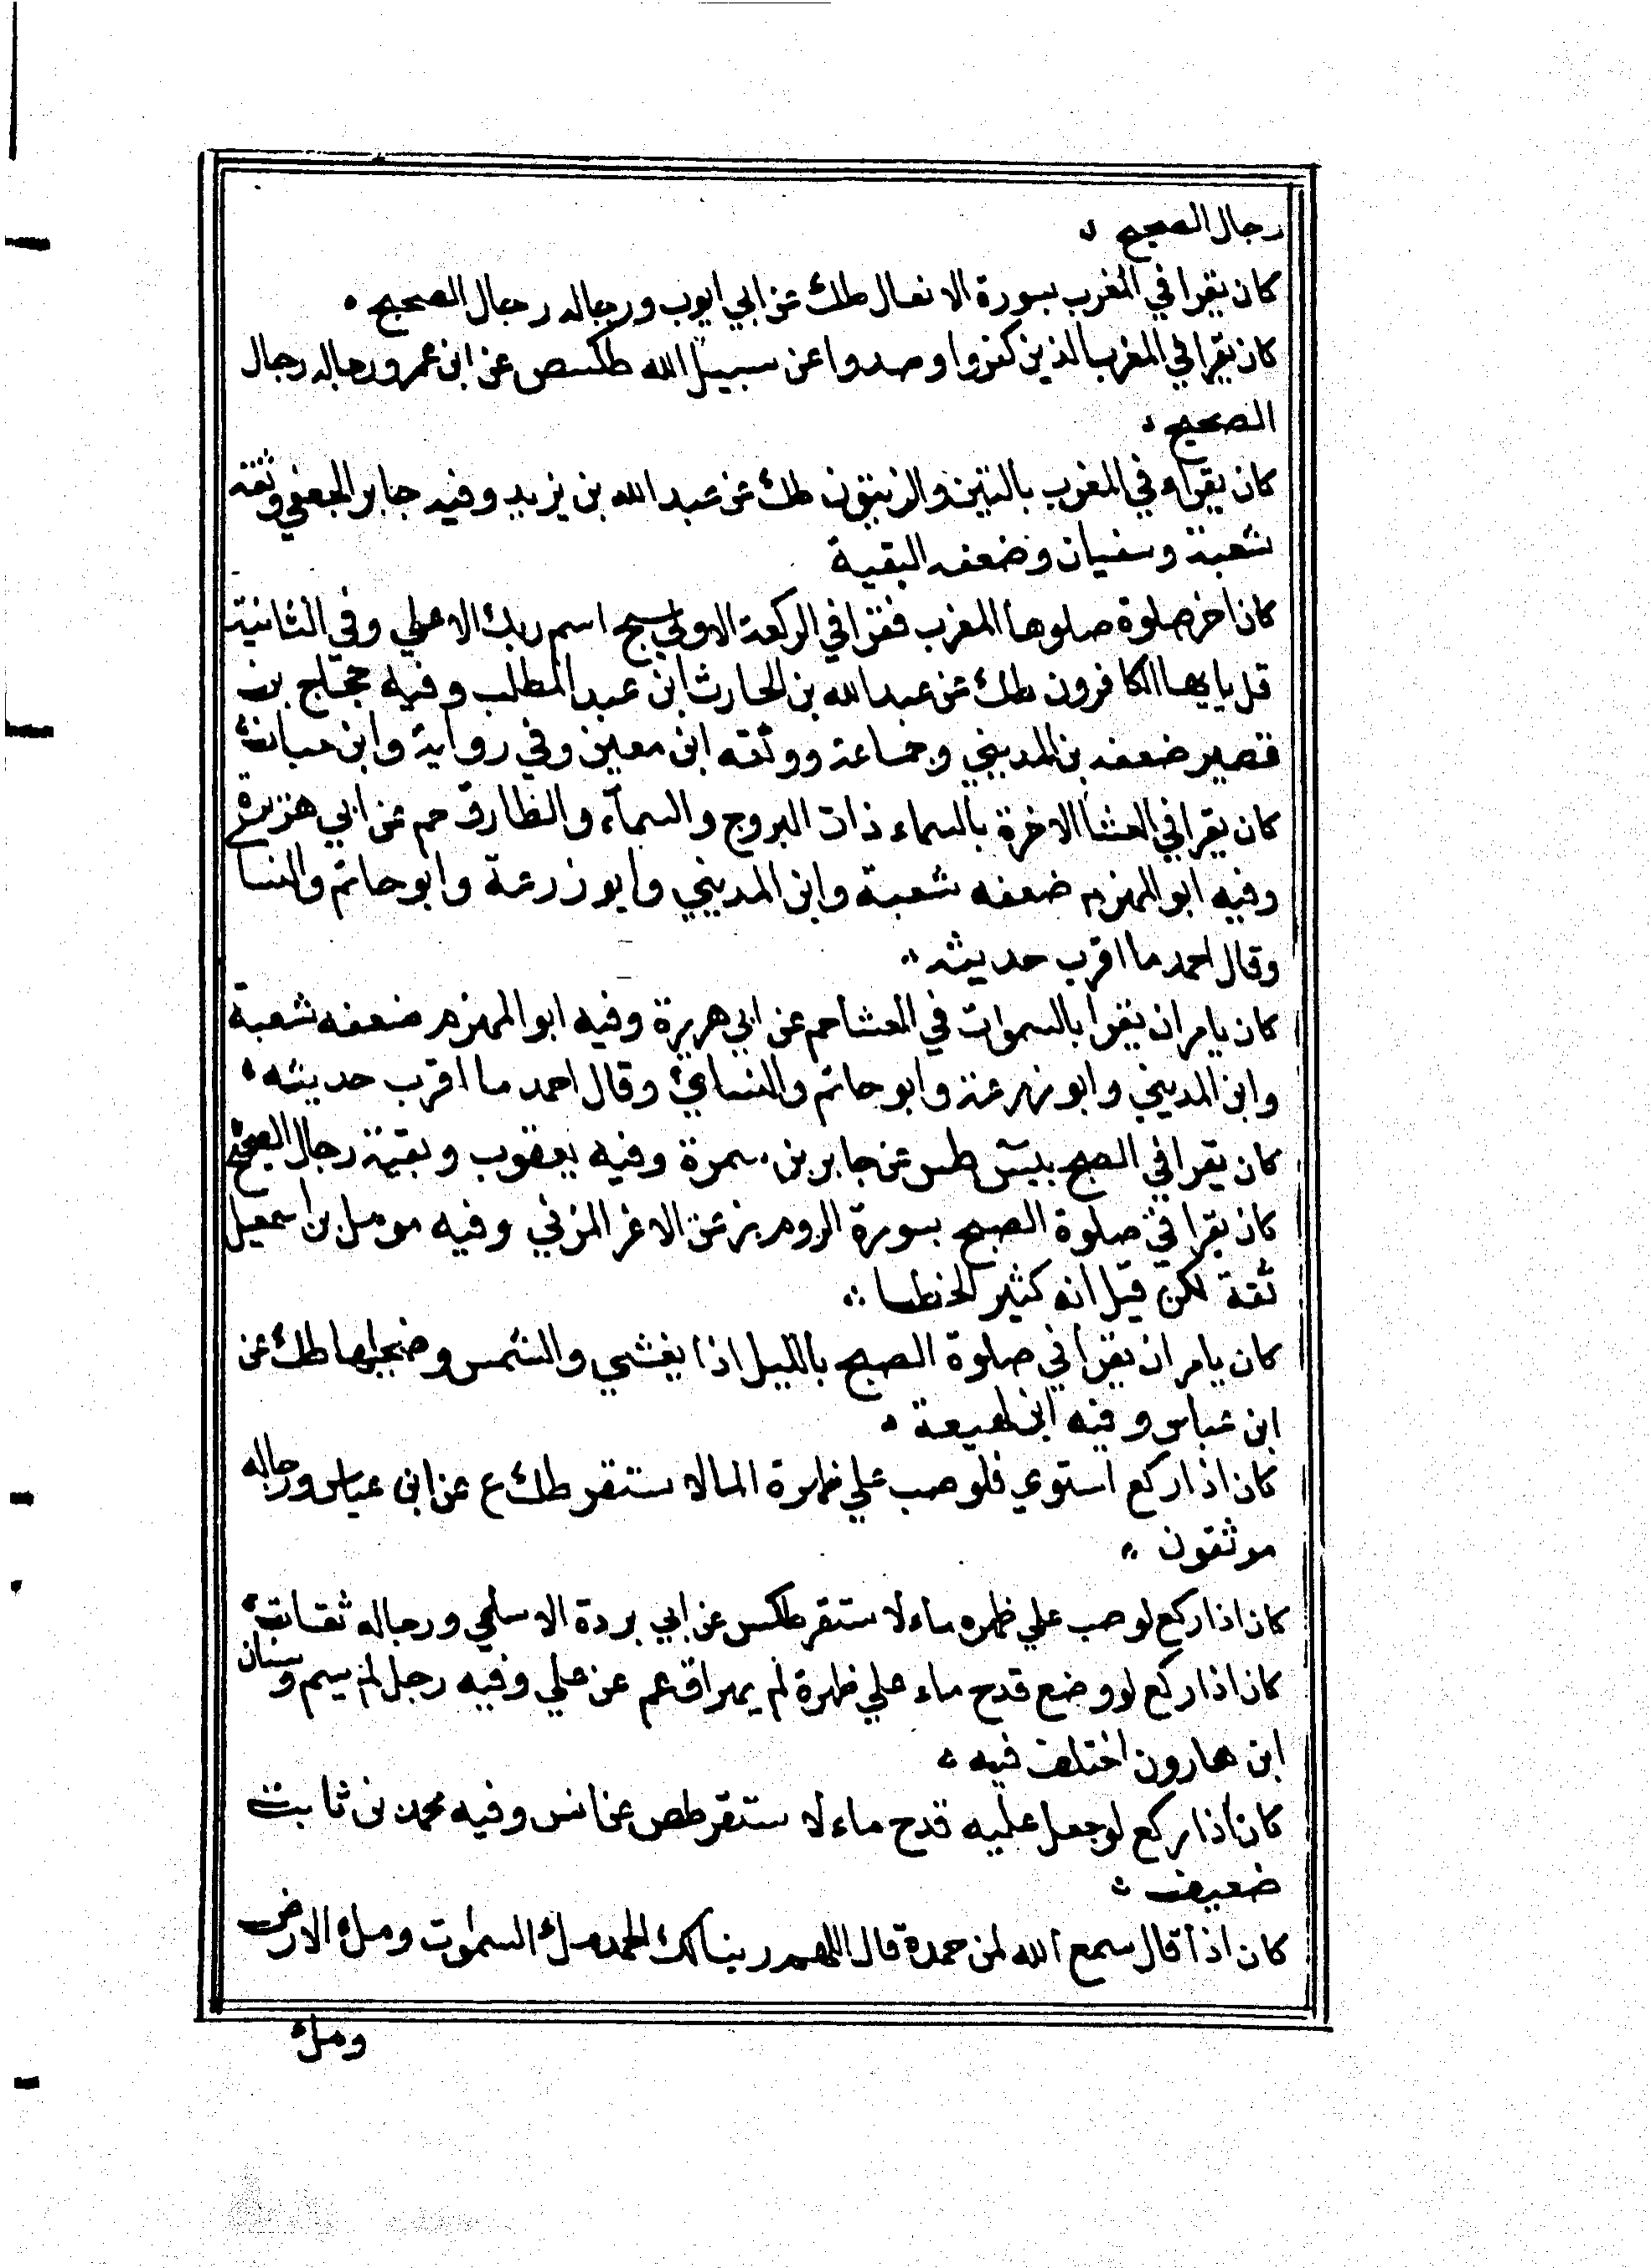 رجال الصحيح
كان يقرا في المغرب بسورة الانفال طك عن ابي ايوب ورجاله رجال الصحيح
كان يقرا في المغرب الذين كفروا وصدوا عن سبيل الله طكسص عن ابن عمر ورجاله رجال
الصحيح
كان يقراء في المغرب بالتين والزيتون طك عن عبد الله بن يزيد وفيه جابر الجعفي وثقه
شعبة وسفيان وضعفه البقية
كان اخر صلوة صلوها المغرب فقرا في الركعة الاولي سبح اسم ربك الاعلي وفي الثانية
قل يايها الكافرون طك عن عبد الله بن الحارث ابن عبد المطلب وفيه حجاج بن
قصير ضعفه بن المديني وجماعة ووثقه ابن معين وفي رواية وابن حبان
كان يقرا في العشا الاخرة بالسماء ذات البروج والسمآء والطارق حم عن ابي هريرة
وفيه ابو المهزم ضعفه شعبة وابن المديني وابو زرعة وابو حاتم والنسا
وقال احمد ما اقرب حديثه
كان يامر ان يقرا بالسموات في العشا حم عن ابي هريرة وفيه ابو المهزم ضعفه شعبة
وابن المديني وابو زرعة وابو حاتم والنسائي وقال احمد ما اقرب حديثه
كان يقرا في الصبح بيس طس عن جابر بن سمرة وفيه يعقوب وبقية رجال الصحيح
كان يقرا في صلوة الصبح بسورة الروم بز عن الاغر المزني وفيه مومل بن اسمعيل
ثقة لكن قيل انه كثير الخطا
كان يامر ان يقرا في صلوة الصبح بالليل اذا يغشي والشمس وضحيها طك عن
ابن عباس وفيه ابن لهيعة
كان اذا ركع استوي فلو صب علي ظهرة الما لاستقر طك ع عن ابن عباس ورجاله
موثقون
كان اذا ركع لو صب علي ظهره ماء لاستقر طكس عن ابي بردة الاسلمي ورجاله ثقات
كان اذا ركع لو وضع قدح ماء علي ظهرة لم يهراق عم عن علي وفيه رجل لم يسم وسنان
ابن هارون اختلف فيه
كان اذا ركع لو جعل عليه قدح ماء لاستقر طص عن انس وفيه محمد بن ثابت
ضعيف
كان اذا قال سمع الله لمن حمدة قال اللهم ربنا لك الحمد ملء السموت وملء الارض
وملء